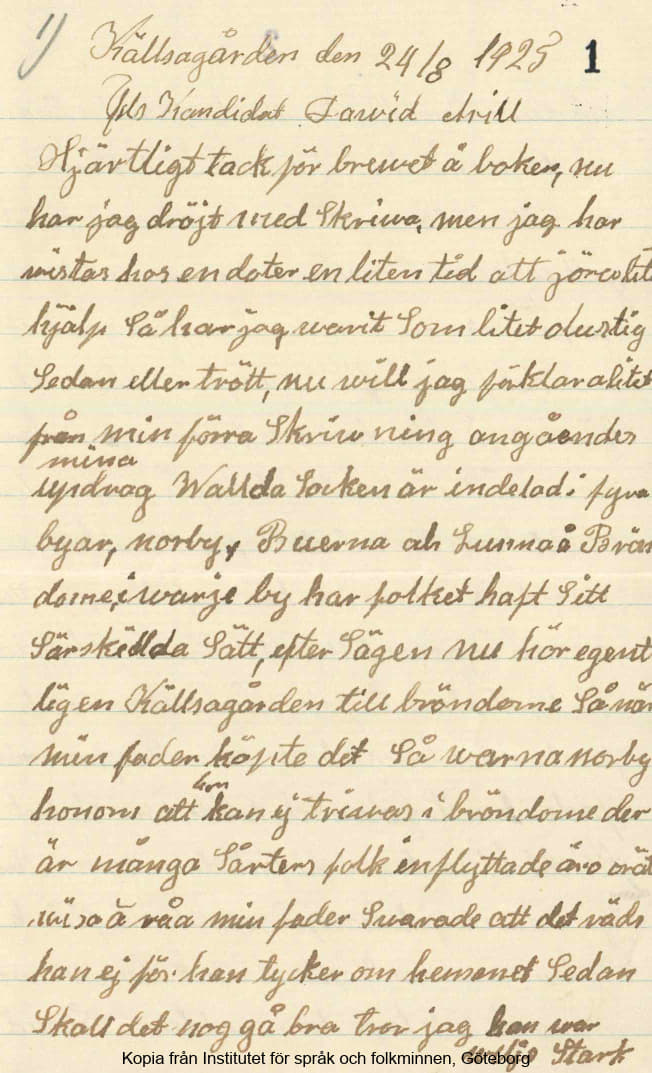 1) Källsagården den 24/8 1925 1
Kandidat Dawid Arill
Hjärtligt tack för brewet å boken, nu
har jag dröjt med Skriwa, men jag har
wistas hos en doter en liten tid att jöra lite
hjälp Så har jag warit Som litet olustig
Sedan eller trött, nu will jag förklara litet
från min förra Skriw ning angåendes
mina
updrag Wallda Socken är indelad i fyra
byar, norby, Buerna ah Lunnaå Brän
dome, i warje by har folket haft Sitt
Särskillda Sätt, efter Sägen nu hör egent
ligen Källsagården till bröndome Så när
min fader köpte det Så warna norby
honom att han kan ej triwas i bröndome der
är många Sårters folk inflyttade äro orät
wisa å råa min fader Swarade att det räds
han ej för han tycker om hemanet Sedan
Skall det nog gå bra tror jag han war
Stark
Kopia från Institutet för språk och folkminnen, Göteborg